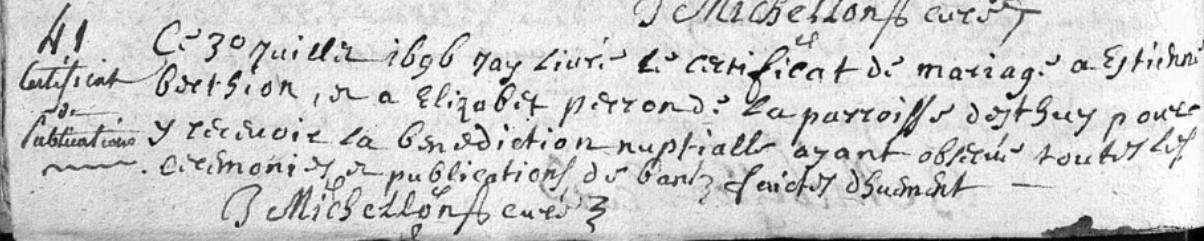 B Michellon curé
41
Certificat
de
Publications
Ce 30 Juillet 1696 Jay livré le certificat de mariage a Estienne
berthion, et a Elizabet perron de la parroisse desthuy pour
y recevoir la benediction nuptialle ayant observé toutes les
ceremonies et publications de bans faictes dhuement
B Michellon curé